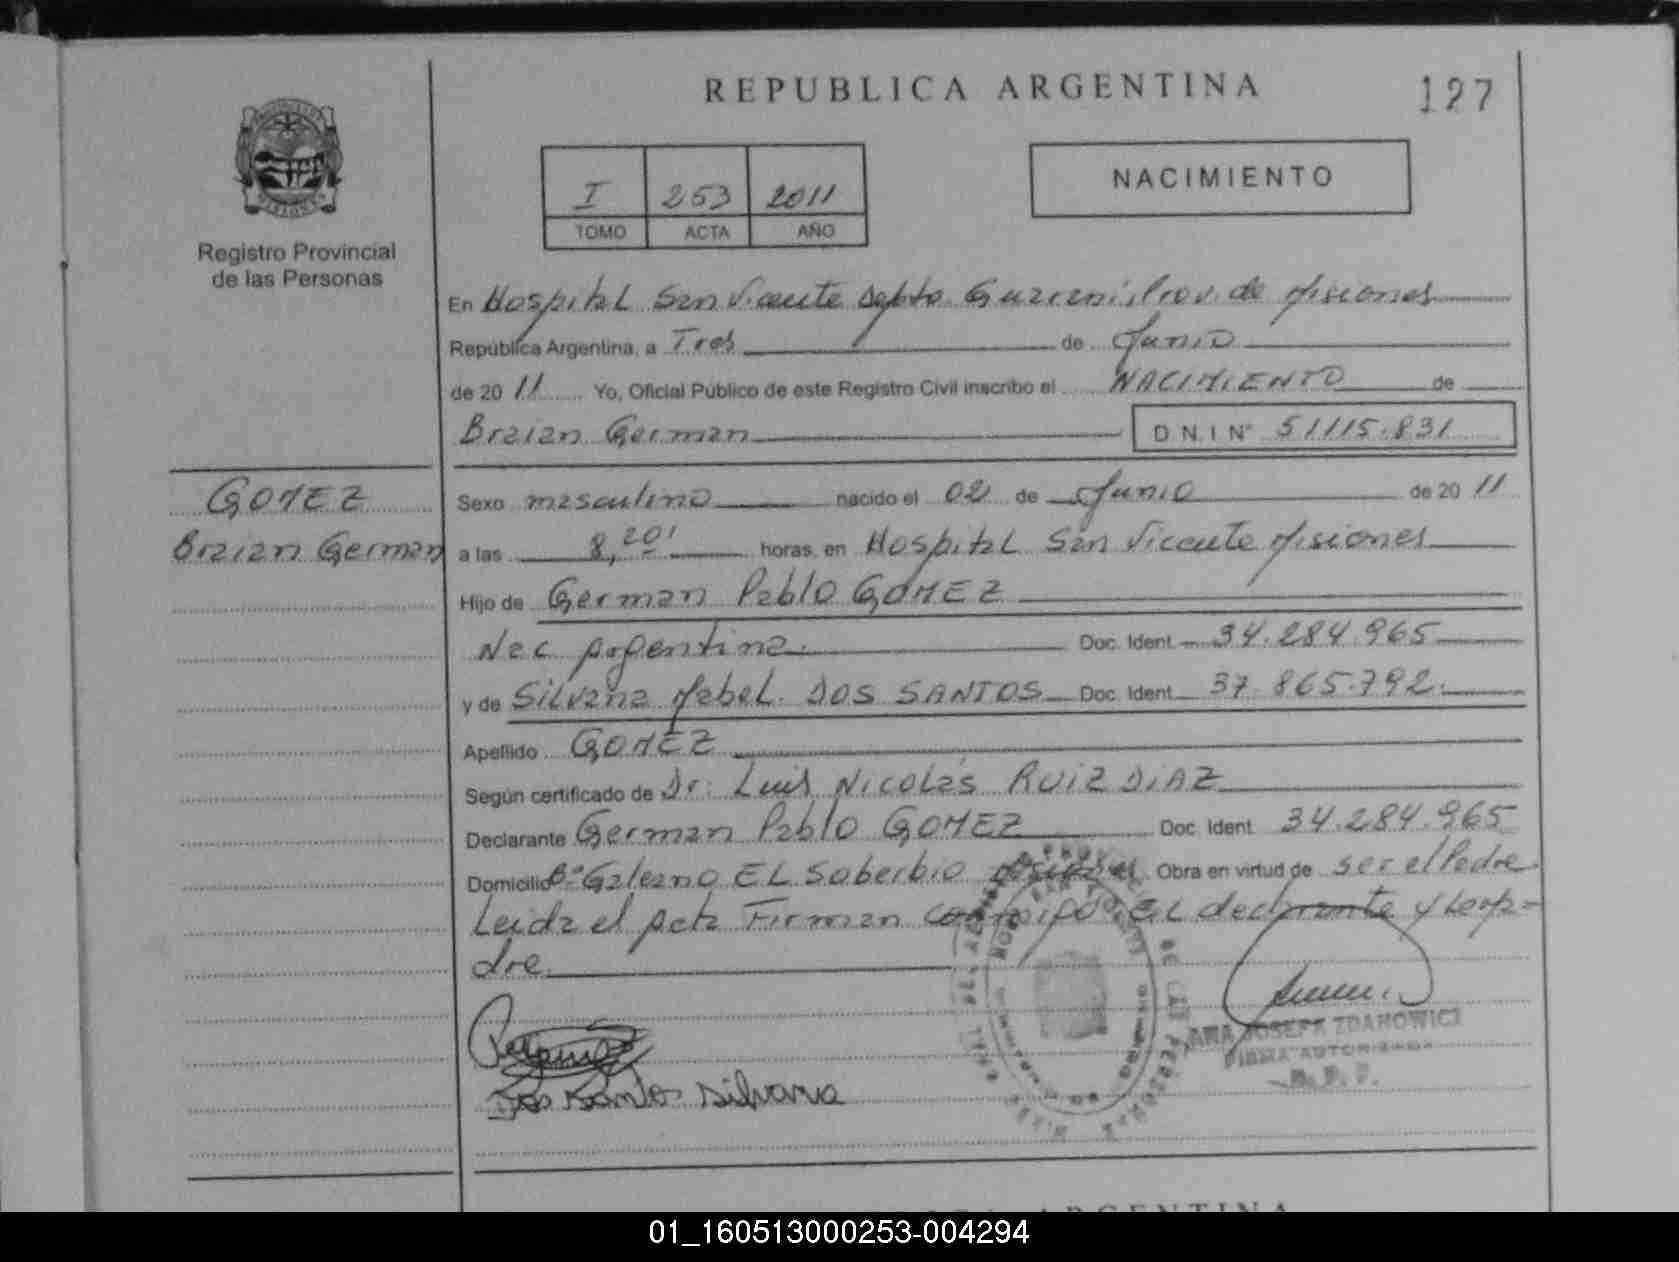 REPUBLICA ARGENTINA
127
I 253 2011
TOMO ACTA AÑO
NACIMIENTO
Registro Provincial
de las Personas
En Hospital San Vicente Depto Guarani Prov. de Misiones
República Argentina, a Tres de Junio
de 20 11 Yo, Oficial Público de este Registro Civil inscribo el NACIMIENTO de
Braian German D.N.I Nº 51115.831
GOMEZ
Braian German
Sexo masculino nacido el 02 de Junio de 20 11
a las 8,20' horas, en Hospital San Vicente Misiones
Hijo de German Pablo GOMEZ
Nac Argentina. Doc. Ident. 34.284.965
y de Silvana Mabel. DOS SANTOS Doc. Ident. 37.865.792.
Apellido GOMEZ
Según certificado de Dr. Luis Nicolás RUIZ DIAZ
Declarante German Pablo GOMEZ Doc. Ident. 34.284.965
Domicilio Bº Galeano EL Soberbio Misiones Obra en virtud de ser el Padre
Leida el Acta Firman conmigo EL declarante y la
dre
Dos Santos Silvana
ANA JOSEFA ZDANOWICZ
FIRMA AUTORIZADA
R. P. P.
REPUBLICA ARGENTINA
01_160513000253-004294